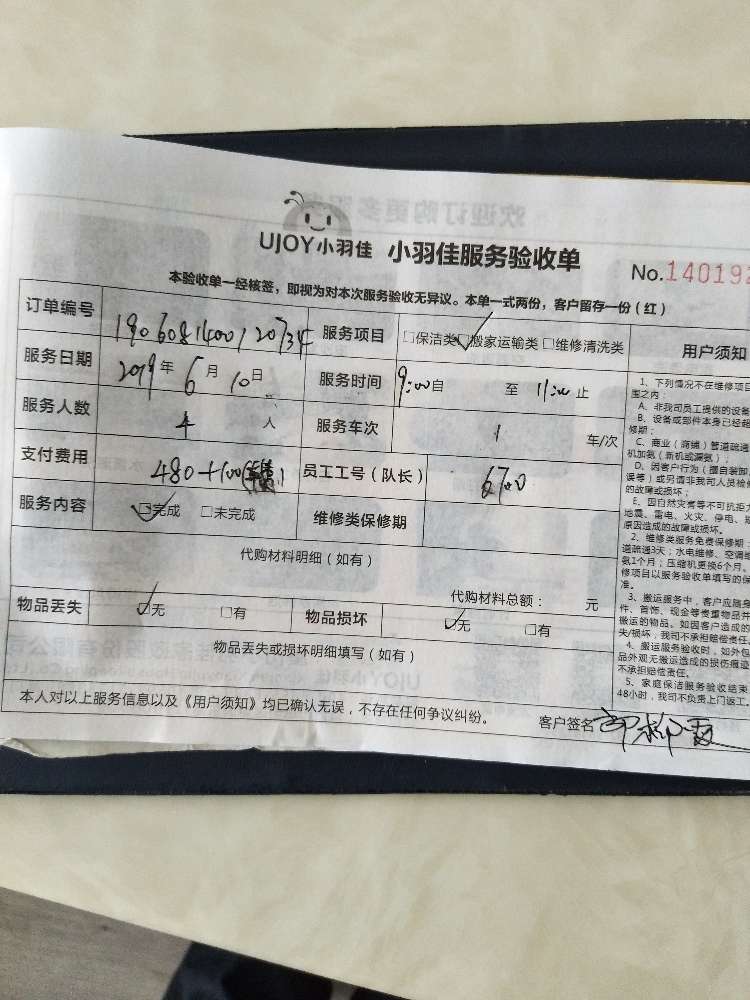 UJOY小羽佳 小羽佳服务验收单
No.140192
本验收单一经核签，即视为对本次服务验收无异议。本单一式两份，客户留存一份（红）
订单编号 190608140012073 服务项目 □保洁类 ☑搬家运输类 □维修清洗类
服务日期 2019年6月10日 服务时间 9:00自 至 11:00止
服务人数 4人 服务车次 1 车/次
支付费用 480+100 员工工号（队长） 6700
服务内容 ☑完成 □未完成 维修类保修期
代购材料明细（如有）
代购材料总额： 元
物品丢失 ☑无 □有 物品损坏 ☑无 □有
物品丢失或损坏明细填写（如有）
本人对以上服务信息以及《用户须知》均已确认无误，不存在任何争议纠纷。
客户签名
用户须知
1、下列情况不在维修项目
围之内：
A、非我司员工提供的设备
B、设备或部件本身已经超
修期；
C、商业（商铺）管道疏通
机加氨（新机或漏氨）；
D、因客户行为（擅自装卸、
误等）或另请非我司人员检修
的故障或损坏；
E、因自然灾害等不可抗拒力
地震、雷电、火灾、停电、
原因造成的故障或损坏。
2、维修类服务免费保修期：
道疏通3天；水电维修、空调维
氨1个月；压缩机更换6个月。
修项目以服务验收单填写的保
准。
3、搬运服务中，客户应随身
件、首饰、现金等贵重物品并
搬运的物品。如因客户造成的
失/损坏，我司不承担赔偿责任。
4、搬运服务验收时，如外包
品外观无搬运造成的损伤痕迹
不承担赔偿责任。
5、家庭保洁服务验收结束
48小时，我司不负责上门返工。